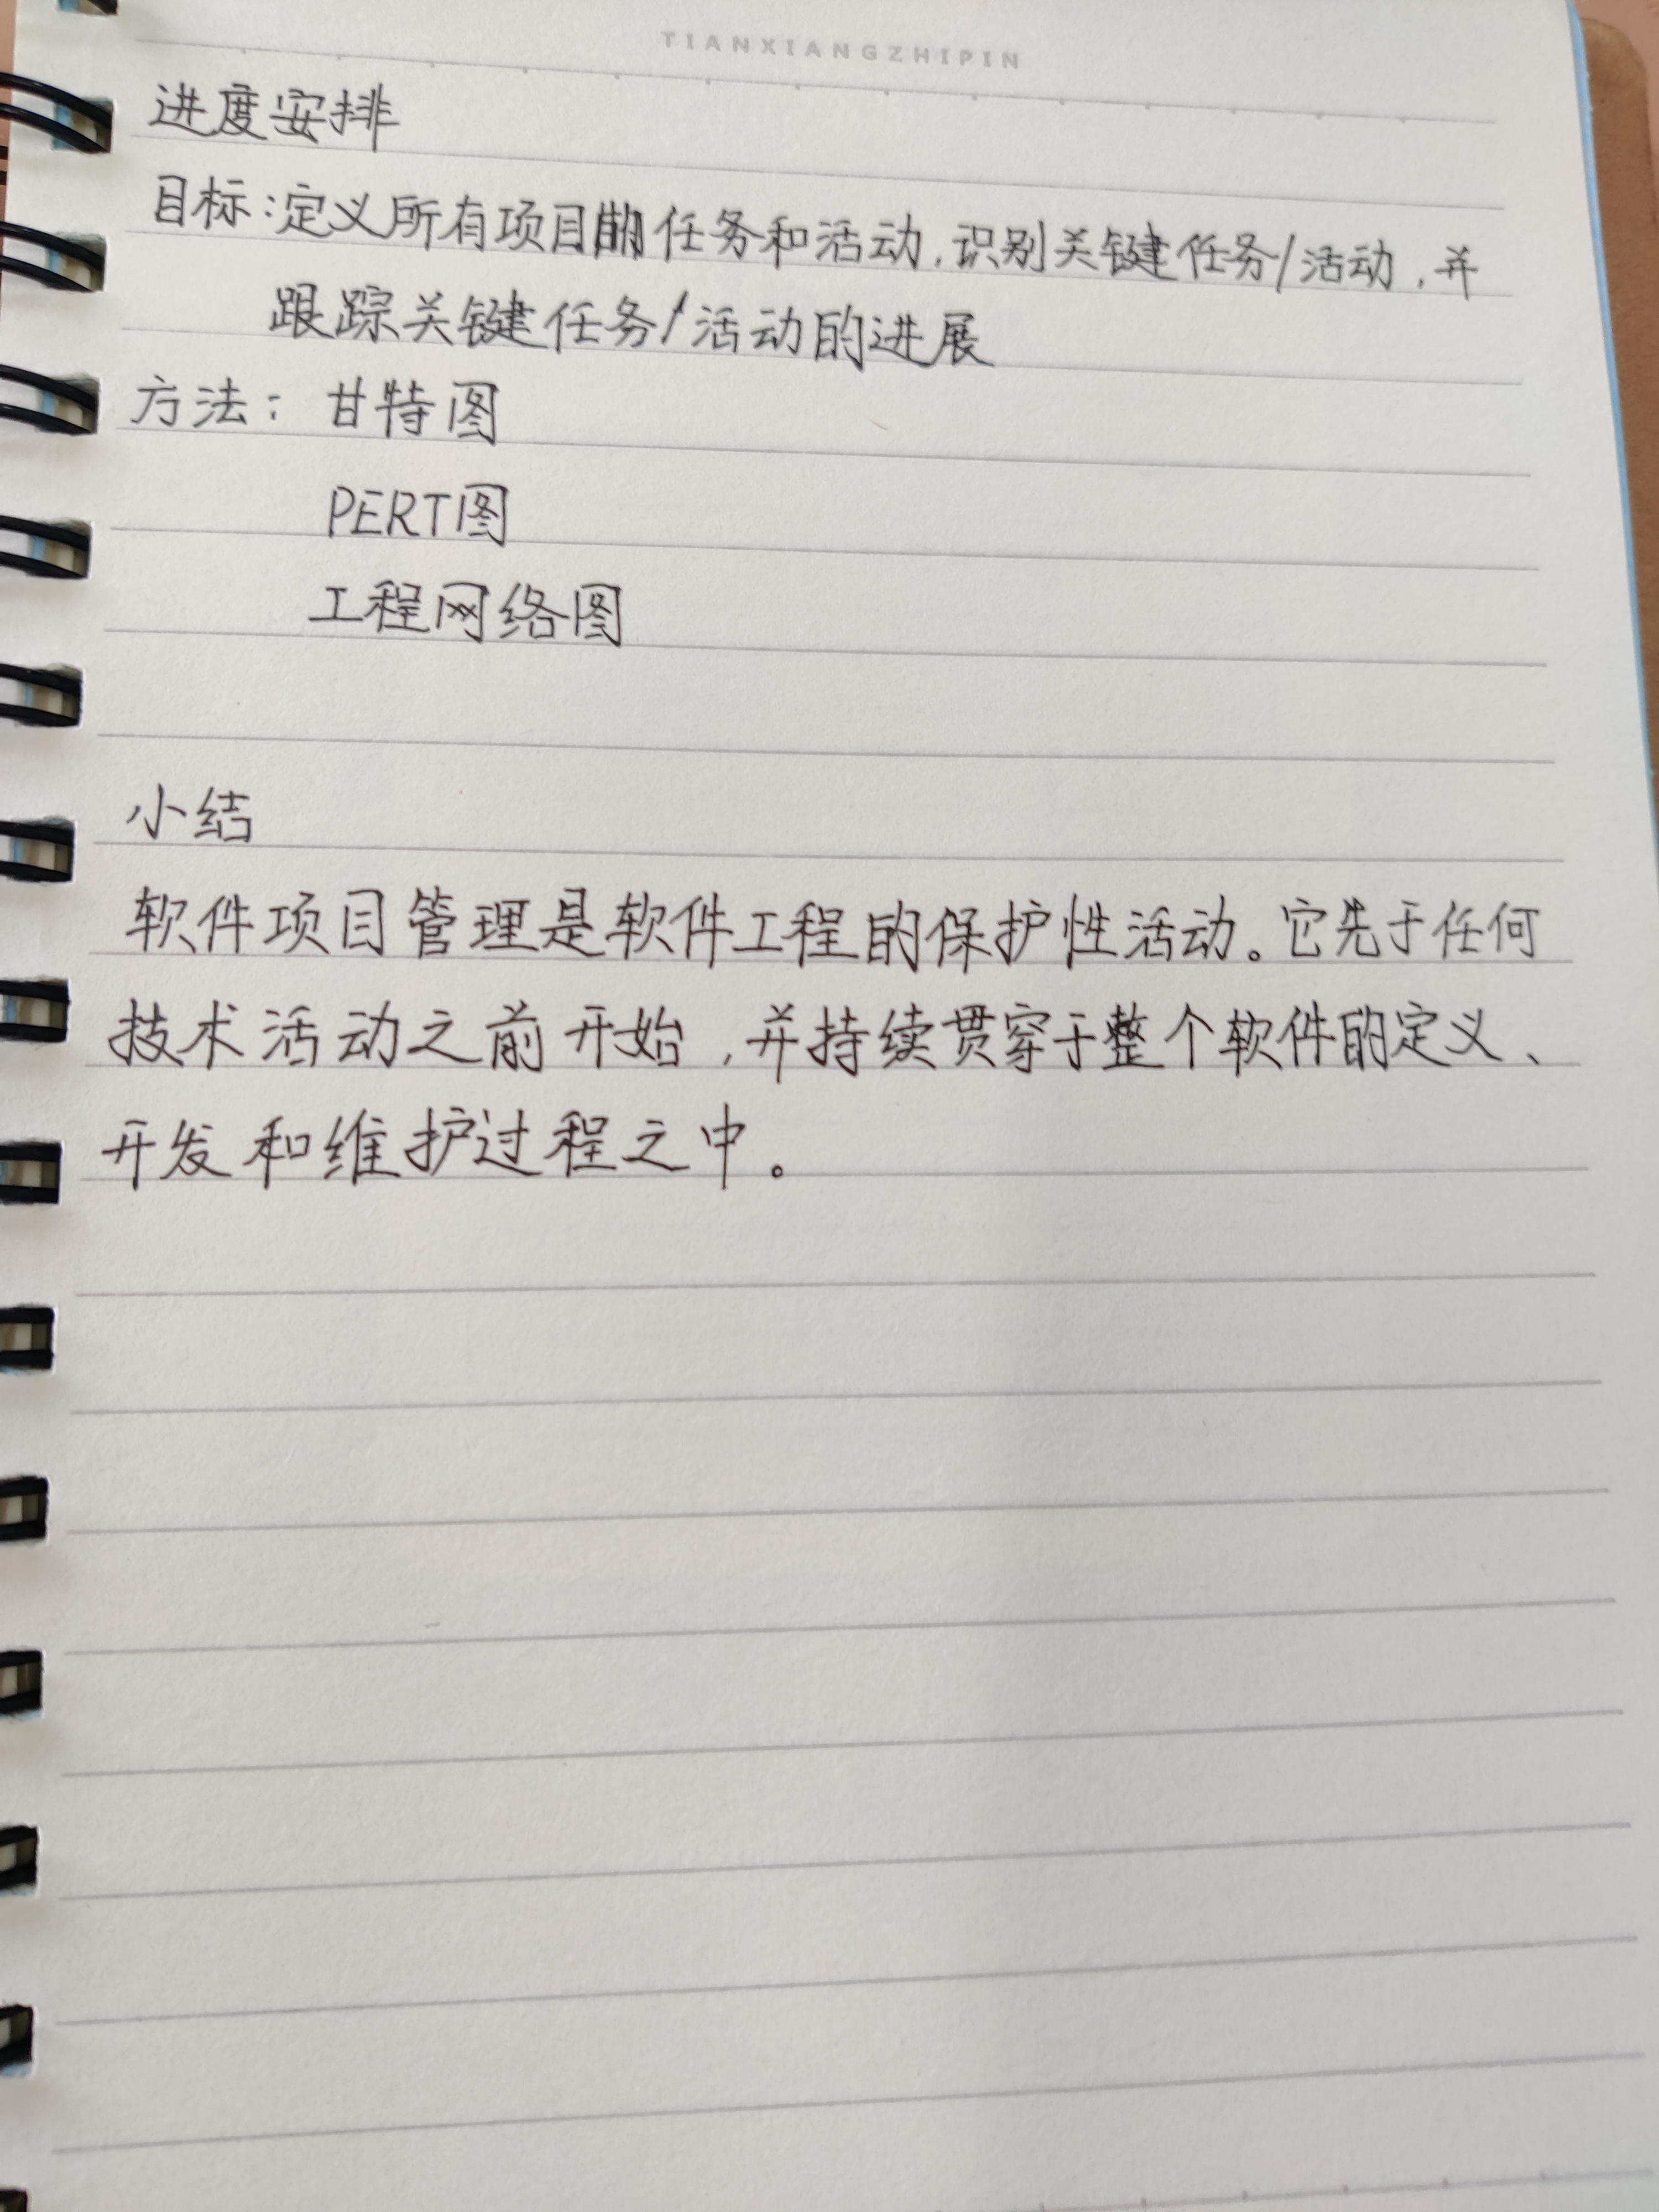 TIANXIANGZHIPIN
进度安排
目标:定义所有项目的任务和活动,识别关键任务/活动,并
跟踪关键任务/活动的进展
方法: 甘特图
PERT图
工程网络图
小结
软件项目管理是软件工程的保护性活动。它先于任何
技术活动之前开始,并持续贯穿于整个软件的定义、
开发和维护过程之中。